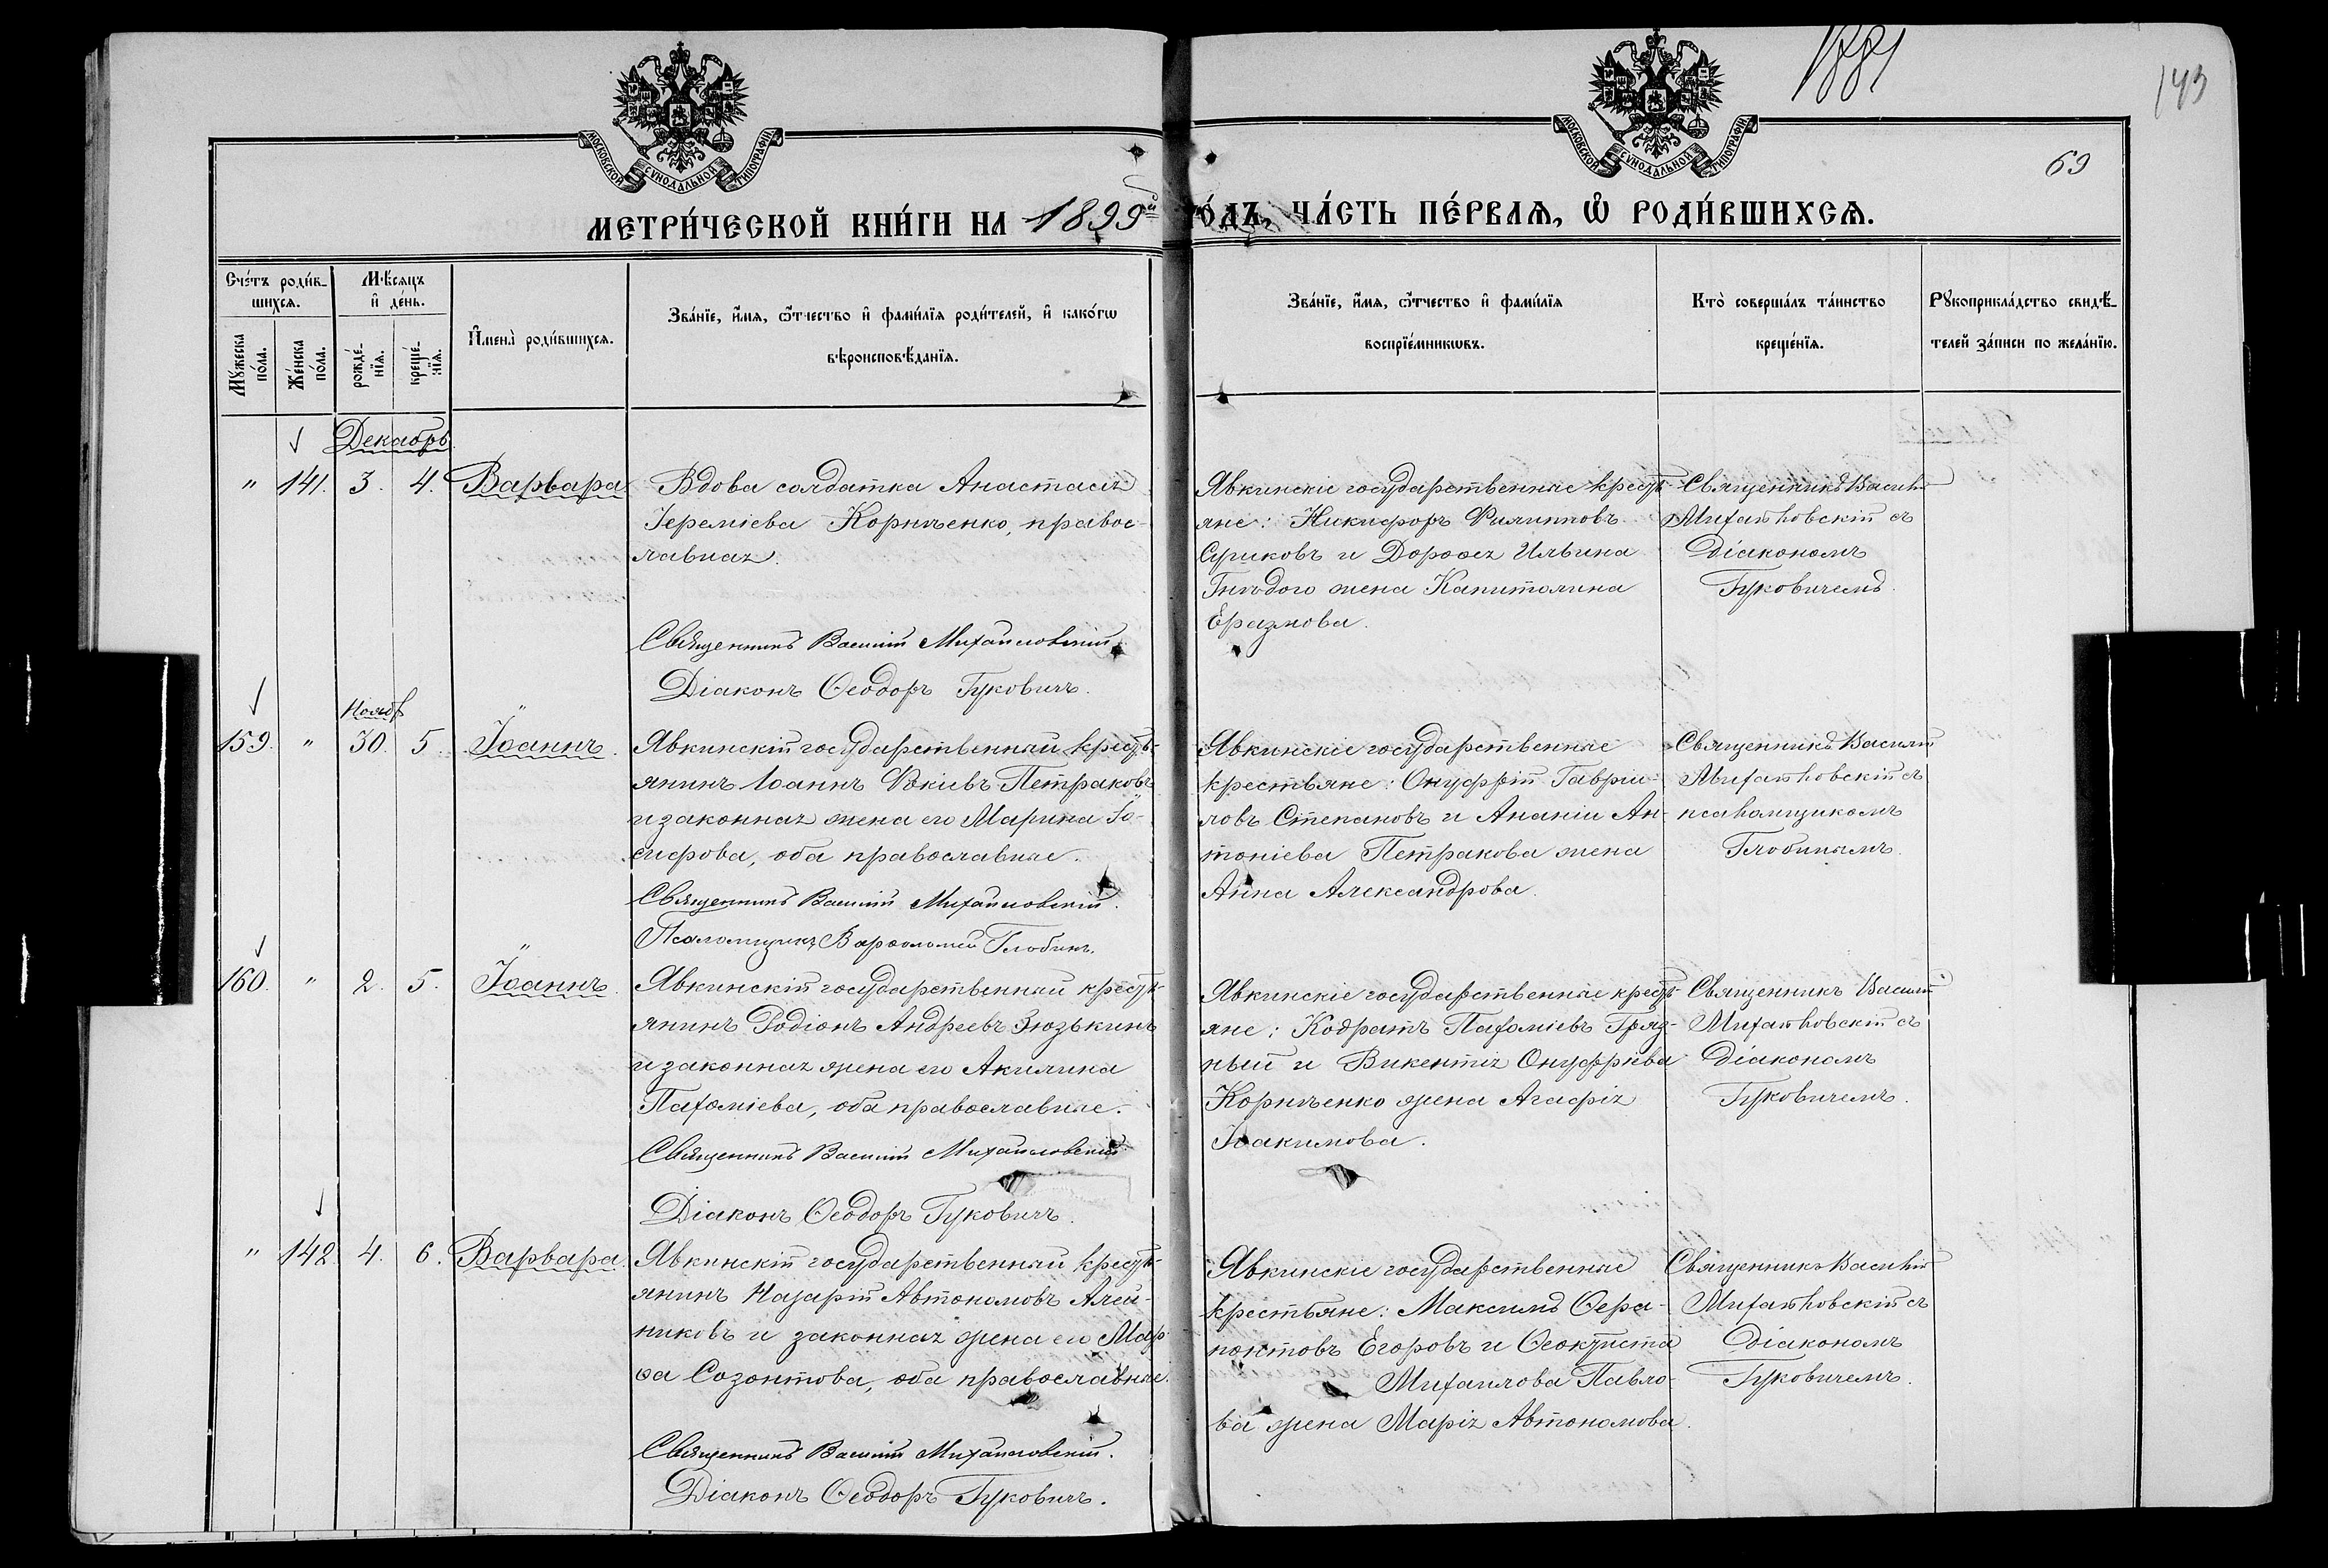 1881
143
69
МОСКОВСКОЙ СѴНОДАЛЬНОЙ ТИПОГРАФІИ
МОСКОВСКОЙ СѴНОДАЛЬНОЙ ТИПОГРАФІИ
МЕТРИ́ЧЕСКОЙ КНИ́ГИ НА 1899й ГО́ДЪ, ЧА́СТЬ ПЕ́РВАѦ, Ѽ РОДИ́ВШИХСѦ.
Сче́тъ роди́в-
шихсѧ.
Мꙋ́жеска по́ла.
Же́нска по́ла.
Мѣ́сѧцъ
и҆ де́нь.
рожде́-
нїѧ.
креще́-
нїѧ.
И҆мена̀ роди́вшихсѧ.
Зва́нїе, и҆́мѧ, ѻ҆́тчество и҆ фами́лїѧ роди́телей, и҆ како́гѡ
вѣроисповѣ́данїѧ.
Зва́нїе, и҆́мѧ, ѻ҆́тчество и҆ фами́лїѧ
воспрїе́мникѡвъ.
Кто̀ соверша́лъ та́инство
креще́нїѧ.
Рꙋкоприкла́дство свидѣ́-
телей за́писи по жела́нїю.
Декабрь
" 141. 3. 4. Варвара
Вдова солдатка Анастасія
Іереміева Корніенко, правос-
лавная.
Священникъ Василій Михайловскій
Діаконъ Ѳеодоръ Гуковичъ.
Явкинскіе государственные кресть-
яне: Никифоръ Филипповъ
Суриковъ и Дороѳея Ильина
Гнѣдого жена Капитолина
Еразмова.
Священникъ Василій
Михайловскій съ
діакономъ
Гуковичемъ.
Ноябр
159. " 30. 5. Іоаннъ.
Явкинскій государственный кресть-
янинъ Іоаннъ Ѳокіевъ Петраковъ
и законная жена его Марина Іо-
сифова, оба православные.
Священникъ Василій Михайловскій.
Псаломщикъ Варѳоломей Глобинъ.
Явкинскіе государственные
крестьяне: Онуфрій Гаврии-
ловъ Степановъ и Ананіи Ан-
тоніева Петракова жена
Анна Александрова.
Священникъ Василій
Михайловскій съ
псаломщикомъ
Глобинымъ.
160. " 2. 5. Іоаннъ.
Явкинскій государственный кресть-
янинъ Родіонъ Андреевъ Зюзькинъ
и законная жена его Акилина
Пахоміева, оба православные.
Священникъ Василій Михайловскій
Діаконъ Ѳеодоръ Гуковичъ.
Явкинскіе государственные кресть-
яне: Кодратъ Пахоміевъ Гряз-
ный и Викентія Онуфріева
Корніенко жена Агафія
Іоакимова.
Священникъ Василій
Михайловскій съ
діакономъ
Гуковичемъ.
" 142. 4. 6. Варвара.
Явкинскій государственный кресть-
янинъ Назарій Автономовъ Алей-
никовъ и законная жена его Мар-
ѳа Созонтова, оба православные.
Священникъ Василій Михайловскій.
Діаконъ Ѳеодоръ Гуковичъ.
Явкинскіе государственные
крестьяне: Максимъ Ѳера-
понтовъ Егоровъ и Ѳеоктиста
Михаилова Павло-
ва жена Марія Автономова.
Священникъ Василій
Михайловскій съ
діакономъ
Гуковичемъ.